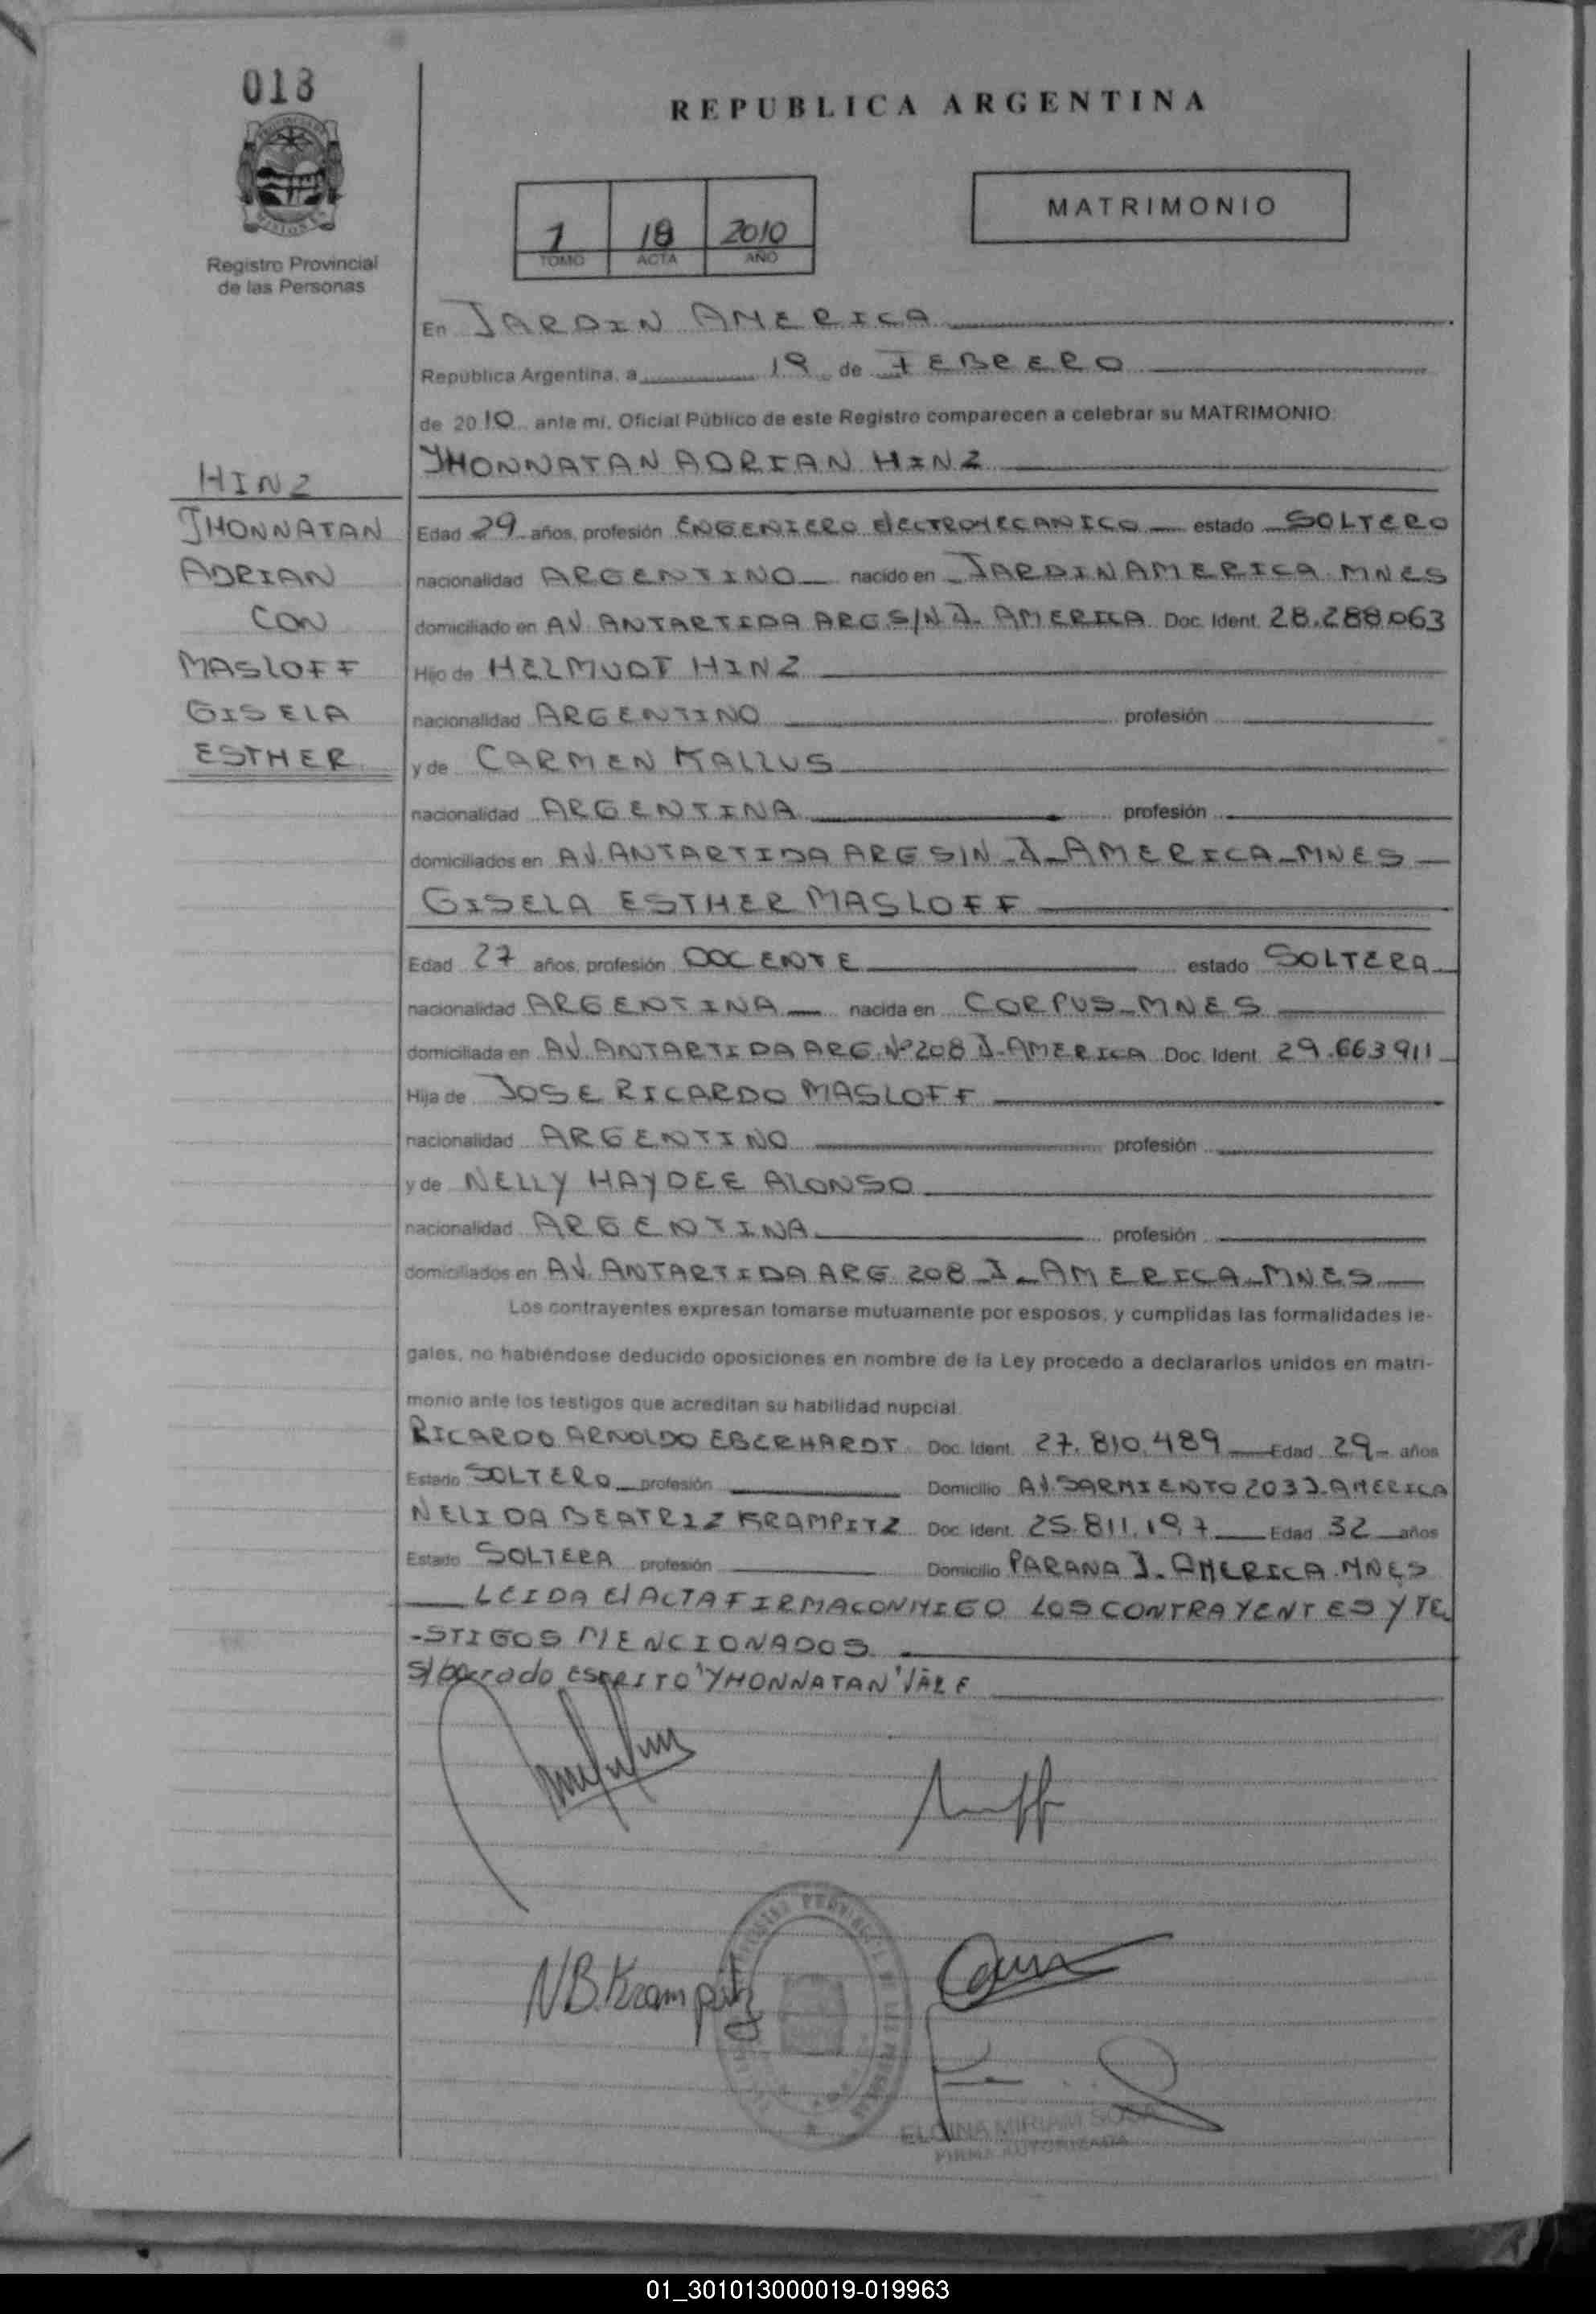 013
REPUBLICA ARGENTINA
MATRIMONIO
1 18 2010
TOMO ACTA AÑO
Registro Provincial
de las Personas
En JARDIN AMERICA
República Argentina, a 19 de FEBRERO
de 2010 ante mi, Oficial Público de este Registro comparecen a celebrar su MATRIMONIO:
YHONNATAN ADRIAN HINZ
HINZ
JHONNATAN
ADRIAN
CON
MASLOFF
GISELA
ESTHER
Edad 29 años, profesión ENGENIERO ElECTROMECANICO estado SOLTERO
nacionalidad ARGENTINO nacido en JARDIN AMERICA. MNES
domiciliado en AV. ANTARTIDA ARG S/N J. AMERICA Doc. Ident. 28.288.063
Hijo de HELMUDT HINZ
nacionalidad ARGENTINO profesión
y de CARMEN KALLUS
nacionalidad ARGENTINA profesión
domiciliados en AV. ANTARTIDA ARG S/N J. AMERICA MNES
GISELA ESTHER MASLOFF
Edad 27 años, profesión DOCENTE estado SOLTERA
nacionalidad ARGENTINA nacida en CORPUS MNES
domiciliada en AV. ANTARTIDA ARG. Nº 208 J. AMERICA Doc. Ident. 29.663911
Hija de JOSE RICARDO MASLOFF
nacionalidad ARGENTINO profesión
y de NELLY HAYDEE ALONSO
nacionalidad ARGENTINA profesión
domiciliados en AV. ANTARTIDA ARG 208 J. AMERICA MNES
Los contrayentes expresan tomarse mutuamente por esposos, y cumplidas las formalidades le-
gales, no habiéndose deducido oposiciones en nombre de la Ley procedo a declararlos unidos en matri-
monio ante los testigos que acreditan su habilidad nupcial.
RICARDO ARNOLDO EBERHARDT Doc. Ident. 27.810.489 Edad 29 años
Estado SOLTERO profesión Domicilio AV. SARMIENTO 203 J. AMERICA
NELIDA BEATRIZ KRAMPITZ Doc. Ident. 25.811.197 Edad 32 años
Estado SOLTERA profesión Domicilio PARANA J. AMERICA. MNES
LEIDA El ACTA FIRMA CONMIGO LOS CONTRAYENTES Y TE
-STIGOS MENCIONADOS
S/borrado ESCRITO "YHONNATAN" VALE
NB. Krampitz
MIRIAM SOSA
FIRMA AUTORIZADA
01_301013000019-019963